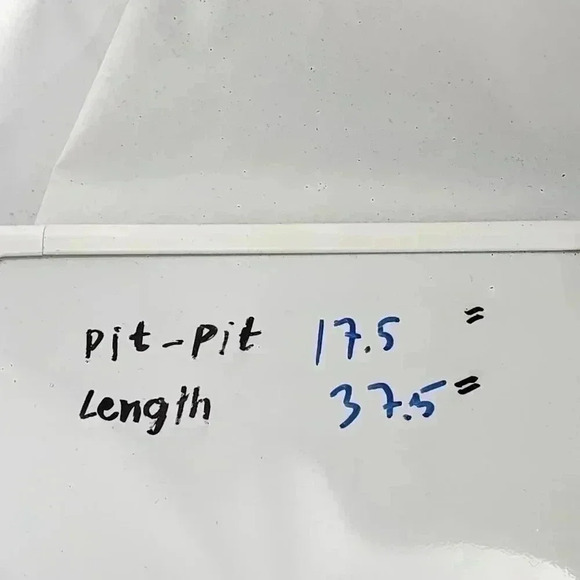 Pit-Pit 17.5 "
Length 37.5"